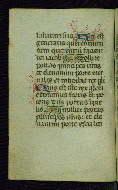 salutari suo Hec est
generatio querentium
eum querentium faciem
dei iacob Attollite
portas principes vestras
et elevamini porte eter
nales et introibit rex glo
Quis est iste rex glorie
dominus fortis et po
tens dominus potens
in prelio Attollite
portas principes vestras et ele
vamini porte eternales